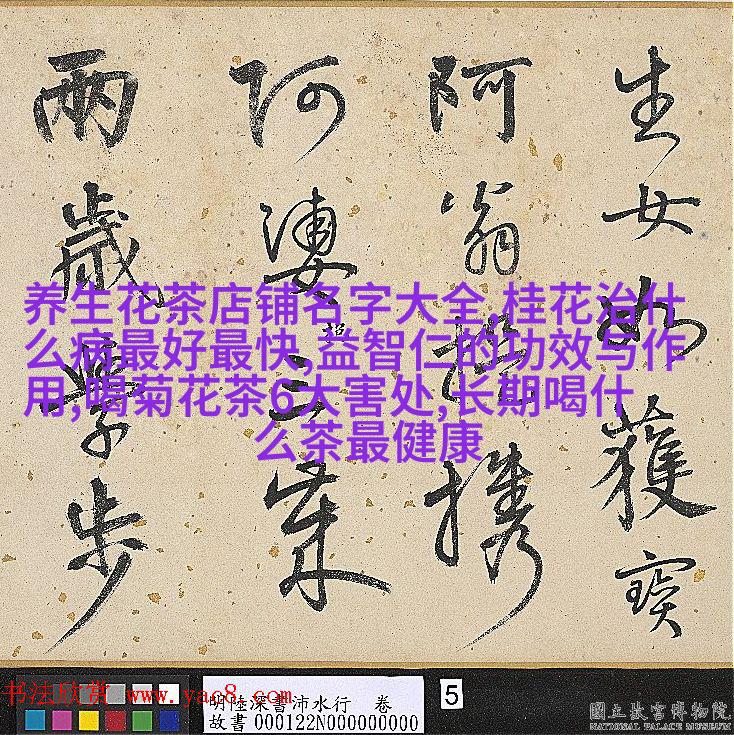 生女如獲寶
阿翁携
阿婆
兩歲學步
养生花茶店铺名字大全,桂花治什
么病最好最快,益智仁的功效与作
用,喝菊花茶6大害处,长期喝什
么茶最健康
书法欣赏 www.yac8.com
明陸深書沛水行 卷
故書 000122N000000000
5
國立故宮博物院
NATIONAL PALACE MUSEUM